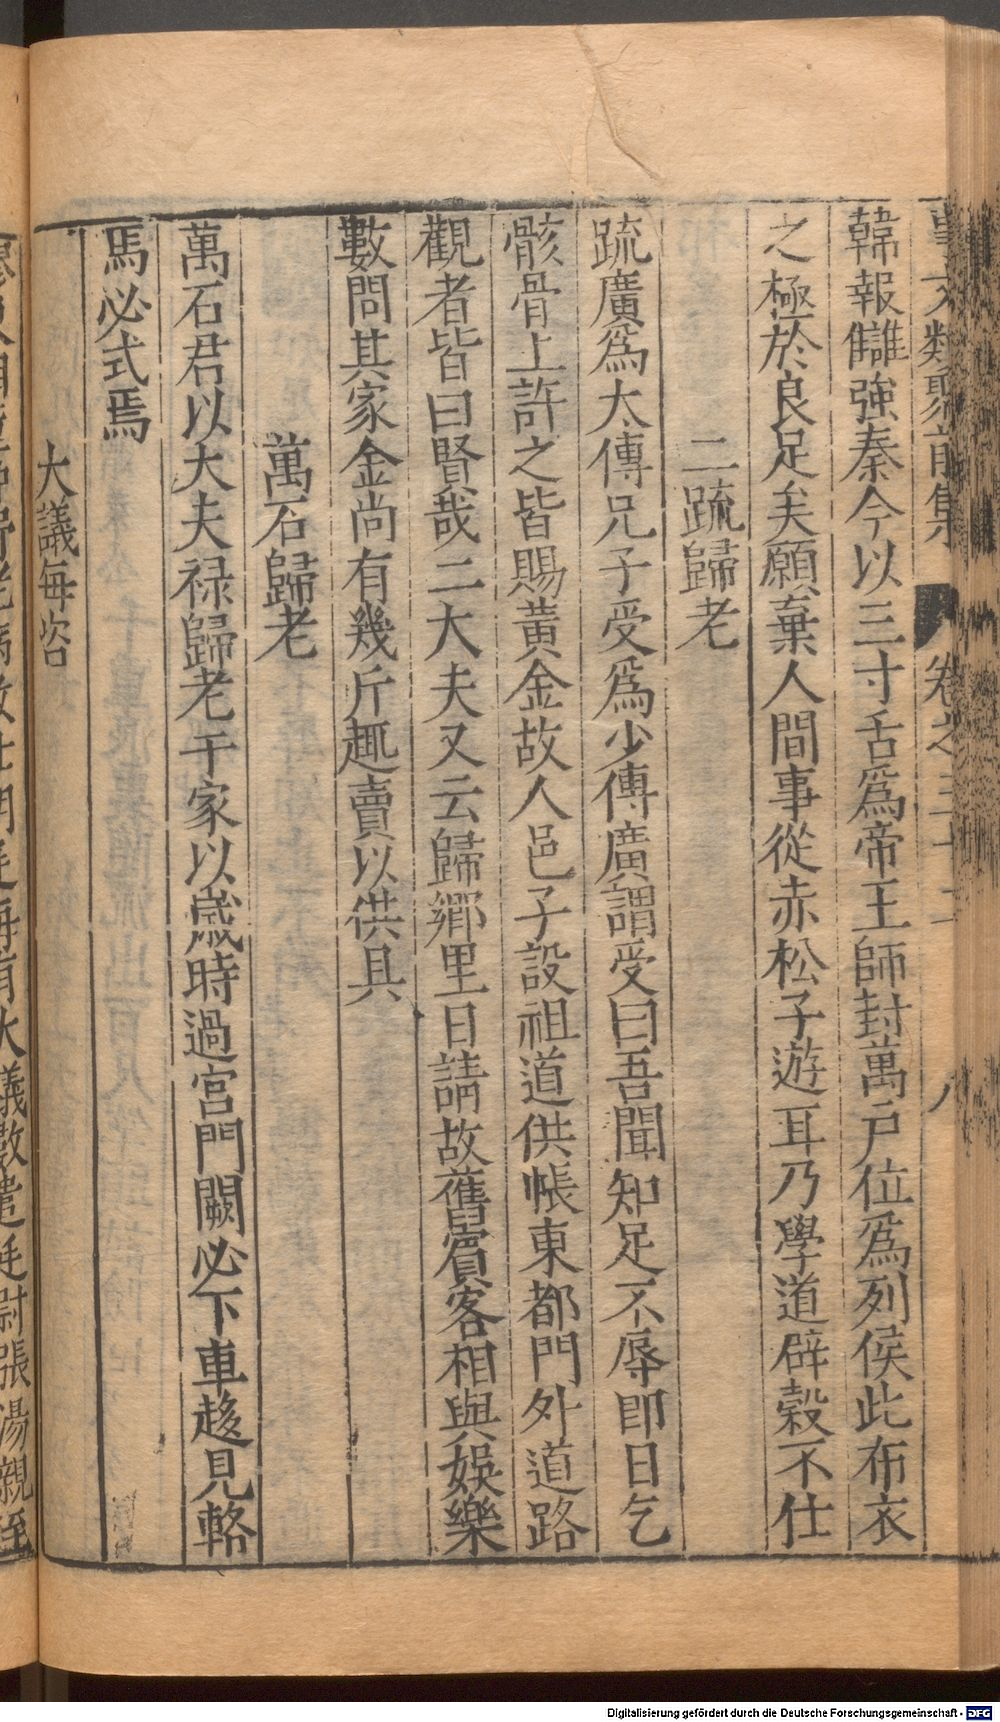 事文類聚前集 卷之三十二 八
韓報讎強秦今以三寸舌爲帝王師封萬戶位爲列侯此布衣
之極於良足矣願棄人間事從赤松子遊耳乃學道辟穀不仕
二疏歸老
疏廣爲太傅兄子受爲少傅廣謂受曰吾聞知足不辱即日乞
骸骨上許之皆賜黃金故人邑子設祖道供帳東都門外道路
觀者皆曰賢哉二大夫又云歸鄉里日請故舊賓客相與娛樂
數問其家金尚有幾斤趣賣以供具
萬石歸老
萬石君以大夫祿歸老于家以歲時過宮門闕必下車趍見輅
馬必式焉
大議每咨
老病致仕朝廷每有大議數遣廷尉張湯親至
Digitalisierung gefördert durch die Deutsche Forschungsgemeinschaft - DFG